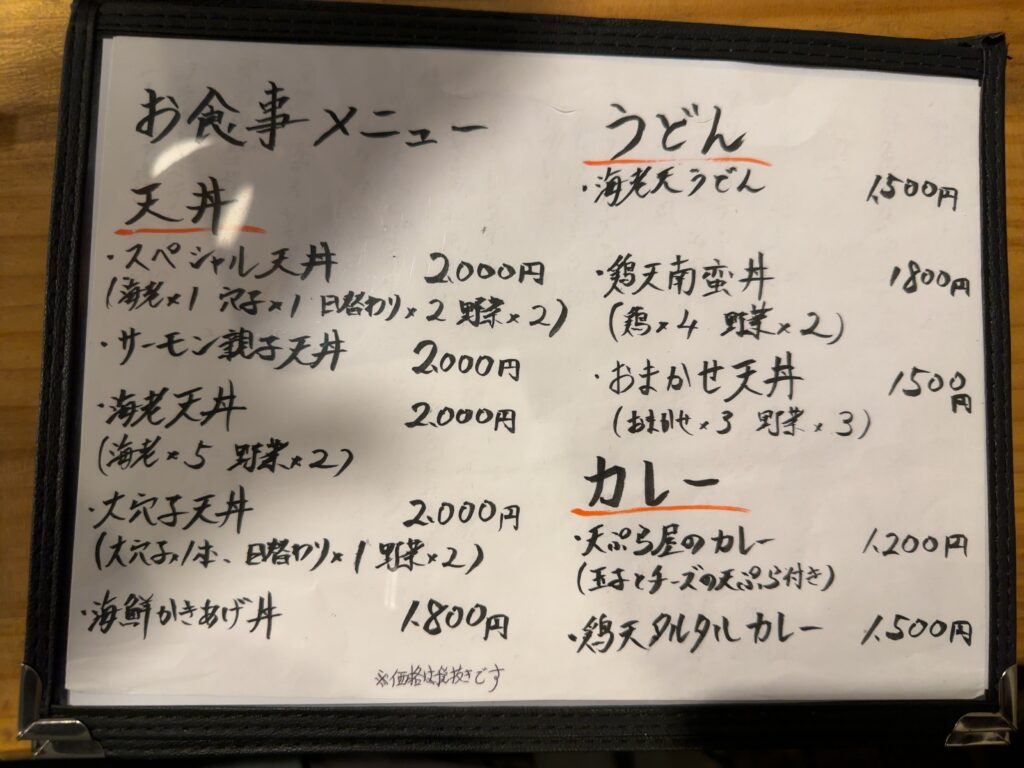 お食事メニュー
天丼
・スペシャル天丼 2.000円
(海老×1 穴子×1 日替わり×2 野菜×2)
・サーモン親子天丼 2.000円
・海老天丼 2.000円
(海老×5 野菜×2)
・大穴子天丼 2.000円
(大穴子×1本、日替わり×1 野菜×2)
・海鮮かきあげ丼 1.800円
※価格は税抜きです
うどん
・海老天うどん 1.500円
・鶏天南蛮丼 1800円
(鶏×4 野菜×2)
・おまかせ天丼 1500
円
(おまかせ×3 野菜×3)
カレー
・天ぷら屋のカレー 1.200円
(玉子とチーズの天ぷら付き)
・鶏天タルタルカレー 1.500円